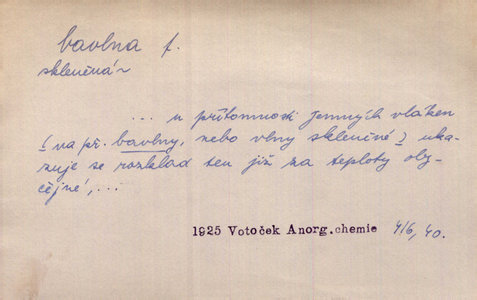 bavlna f.
skleněná ~
... u přítomnosti jemných vláken
(na př. bavlny, nebo vlny skleněné) uka-
zuje se rozklad ten již za teploty oby-
čejné, ...
1925 Votoček Anorg.chemie 416, 40.